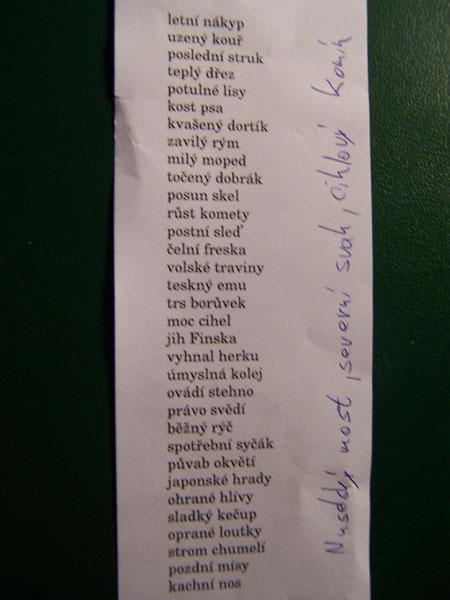 letní nákyp
uzený kouř
poslední struk
teplý dřez
potulné lisy
kost psa
kvašený dortík
zavilý rým
milý moped
točený dobrák
posun skel
růst komety
postní sleď
čelní freska
volské traviny
teskný emu
trs borůvek
moc cihel
jih Finska
vyhnal herku
úmyslná kolej
ovádí stehno
právo svědí
běžný rýč
spotřební syčák
půvab okvětí
japonské hrady
ohrané hlívy
sladký kečup
oprané loutky
strom chumelí
pozdní mísy
kachní nos
Nuselský most, severní svah, cihlový komín